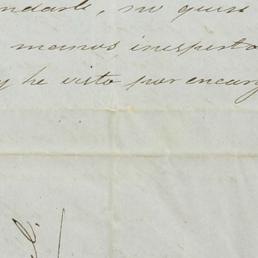 ndarle, no quise
manos inesperta
y he visto por encarg